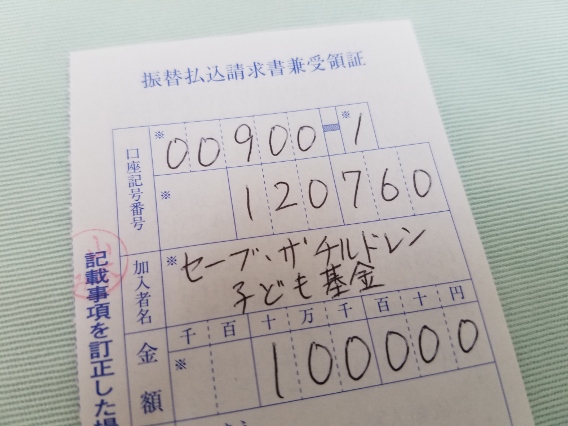 振替払込請求書兼受領証
口座記号番号
※00900-※1
※120760
加入者名
※セーブ・ザ チルドレン
子ども基金
金額
千百十万千百十円
※100000
記載事項を訂正した場